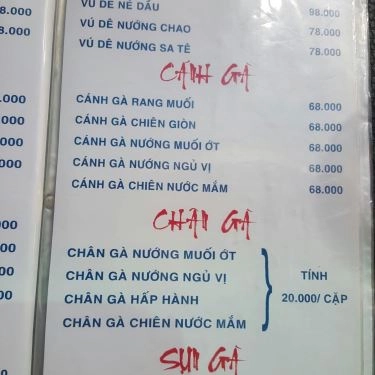 8.000
8.000
VÚ DÊ NÉ DẦU 98.000
VÚ DÊ NƯỚNG CHAO 78.000
VÚ DÊ NƯỚNG SA TẾ 78.000
CÁNH GÀ
CÁNH GÀ RANG MUỐI 68.000
CÁNH GÀ CHIÊN GIÒN 68.000
CÁNH GÀ NƯỚNG MUỐI ỚT 68.000
CÁNH GÀ NƯỚNG NGỦ VỊ 68.000
CÁNH GÀ CHIÊN NƯỚC MẮM 68.000
.000
.000
.000
000
CHÂN GÀ
CHÂN GÀ NƯỚNG MUỐI ỚT
CHÂN GÀ NƯỚNG NGỦ VỊ
CHÂN GÀ HẤP HÀNH
CHÂN GÀ CHIÊN NƯỚC MẮM
TÍNH
20.000/ CẶP
00
00
00
00
SỤN GÀ